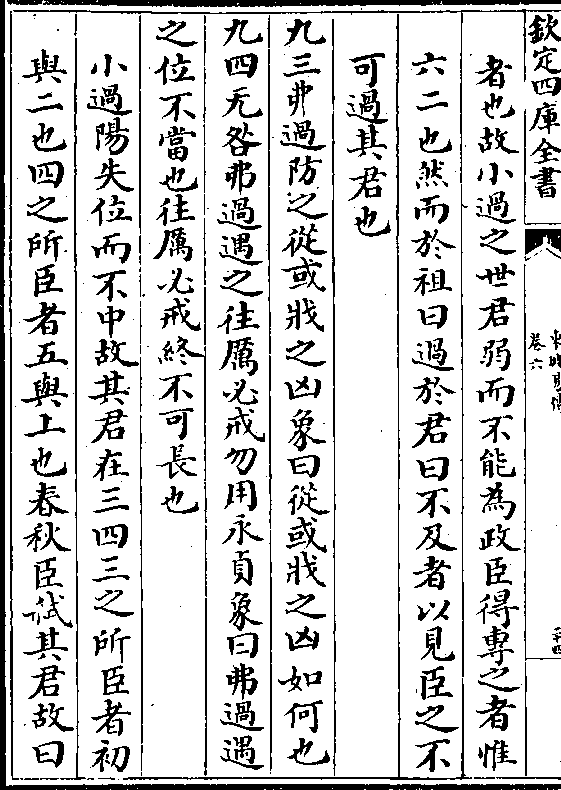 欽定四庫全書
卷六
者也故小過之世君弱而不能為政臣得專之者惟
六二也然而於祖曰過於君曰不及者以見臣之不
可過其君也
九三弗過防之從或戕之凶象曰從或戕之凶如何也
九四无咎弗過遇之往厲必戒勿用永貞象曰弗過遇
之位不當也往厲必戒終不可長也
小過陽失位而不中故其君在三四三之所臣者初
與二也四之所臣者五與上也春秋臣弑其君故曰